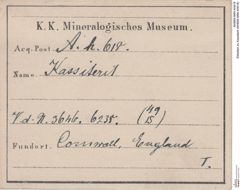 K. K. Mineralogisches Museum.
Acq. Post. A. h. 618.
Name: Kassiterit
V.d.N. 3646. 6238. (49/15)
Fundort. Cornwall, England
T.